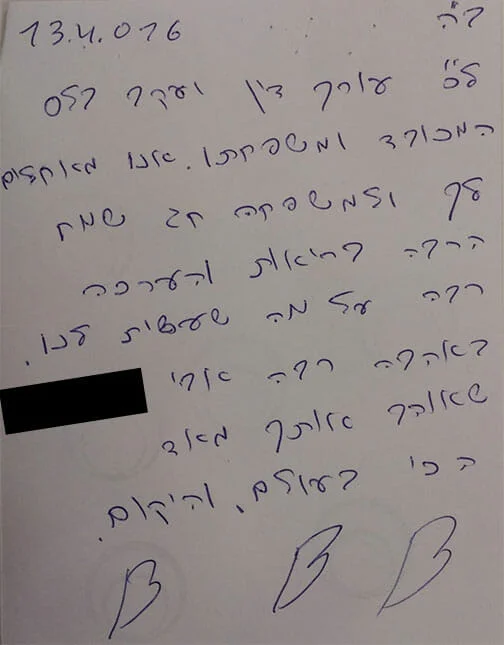 ב"ה 13.4.016
לכ' עורך דין יעקב בלס
המכובד ומשפחתו. אנו מאחלים
לך ולמשפחה חג שמח
הרבה בריאות והערכה
רבה על מה שעשית לנו.
באהבה רבה אורי
שאוהב אותך מאוד
הכי בעולם, והיקום.